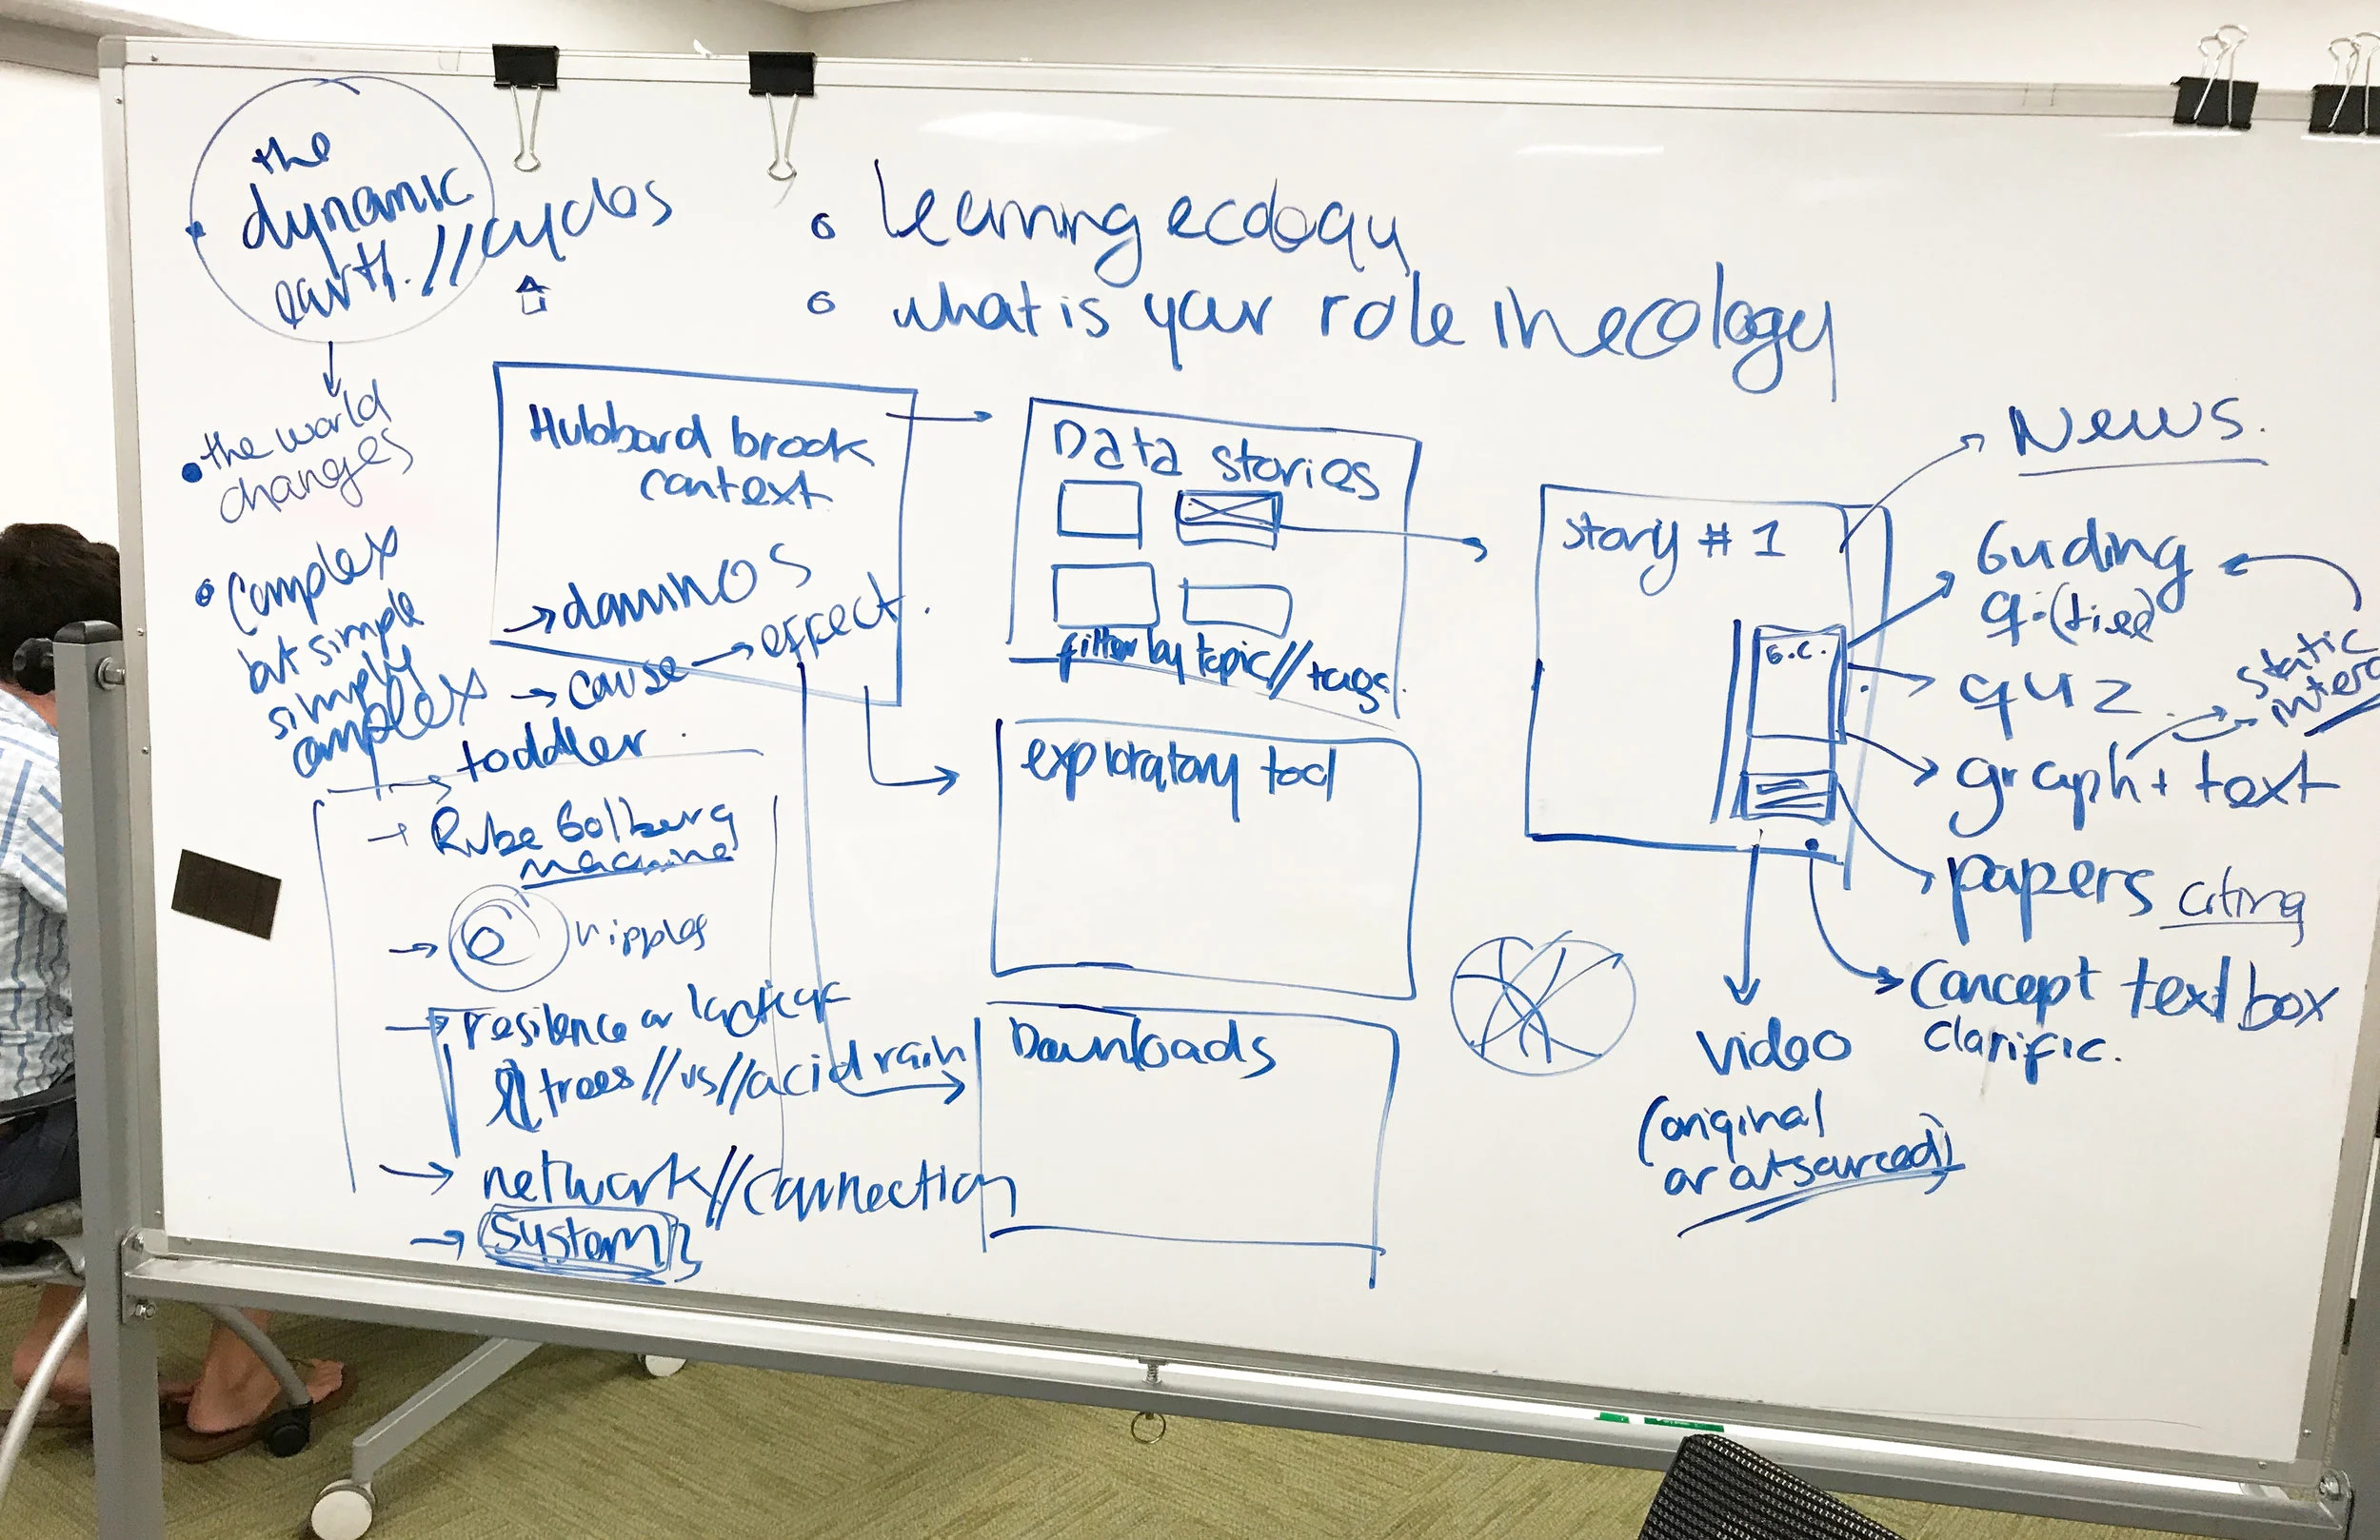 the
dynamic
earth. // cycles
• learning ecology
• what is your role in ecology
• the world
changes
• Complex
but simple
simply
complex
Hubbard brook
context
→ dominos
→ cause → effect.
→ toddler
→ Rube Golberg
machine
→ ripples
→ resilence or lack of
trees // vs // acid rain
→ network // connection
→ System
Data stories
filter by topic // tags.
exploratory tool
Downloads
Story # 1
G.C.
News.
Guding
q: (tied)
quz
static
graph + text
papers citing
Concept text box
Clarific.
Video
(original
or outsourced)